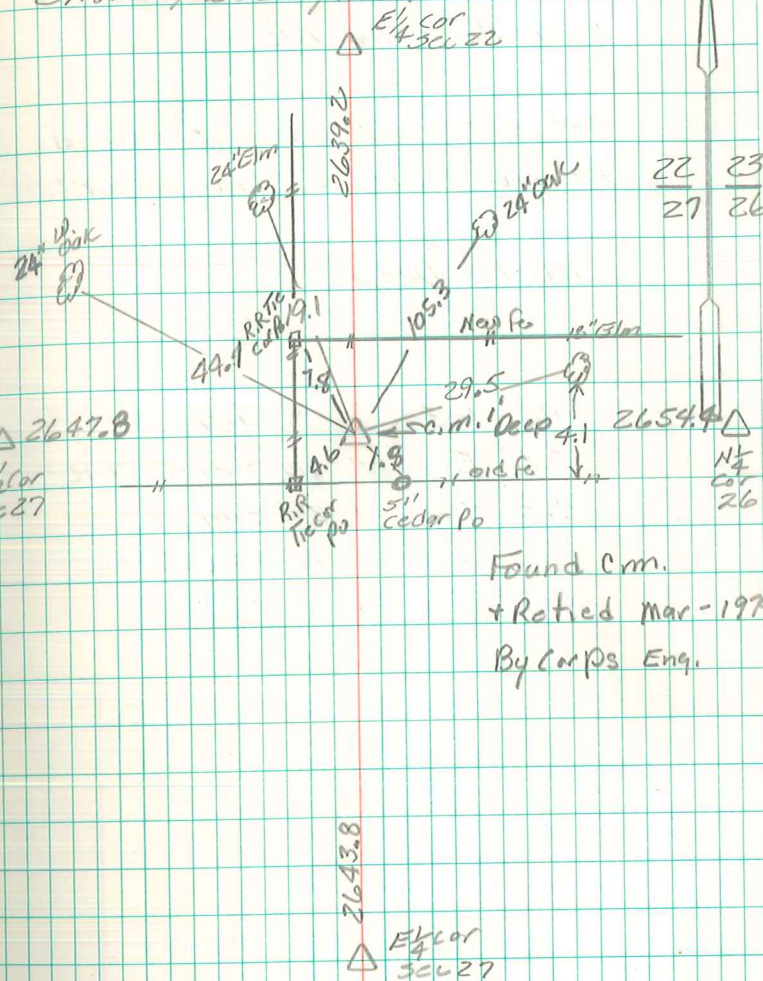 E 1/4 cor
Sec 22
2639.2
24" Elm
24" Oak
22 23
27 26
24" W Oak
R.R Tie
cor Po.
19.1
105.3
New fe
12" Elm
44.7
7.8
29.5
c.m. 1' Deep
4.1
2654.4
2647.8
4.6
7.8
old fe
N 1/4
cor
26
cor
27
R.R
Tie cor
po
5"
Cedar Po
Found Cm.
+ Retied Mar - 197
By Corps Eng.
2643.8
E 1/4 cor
Sec 27